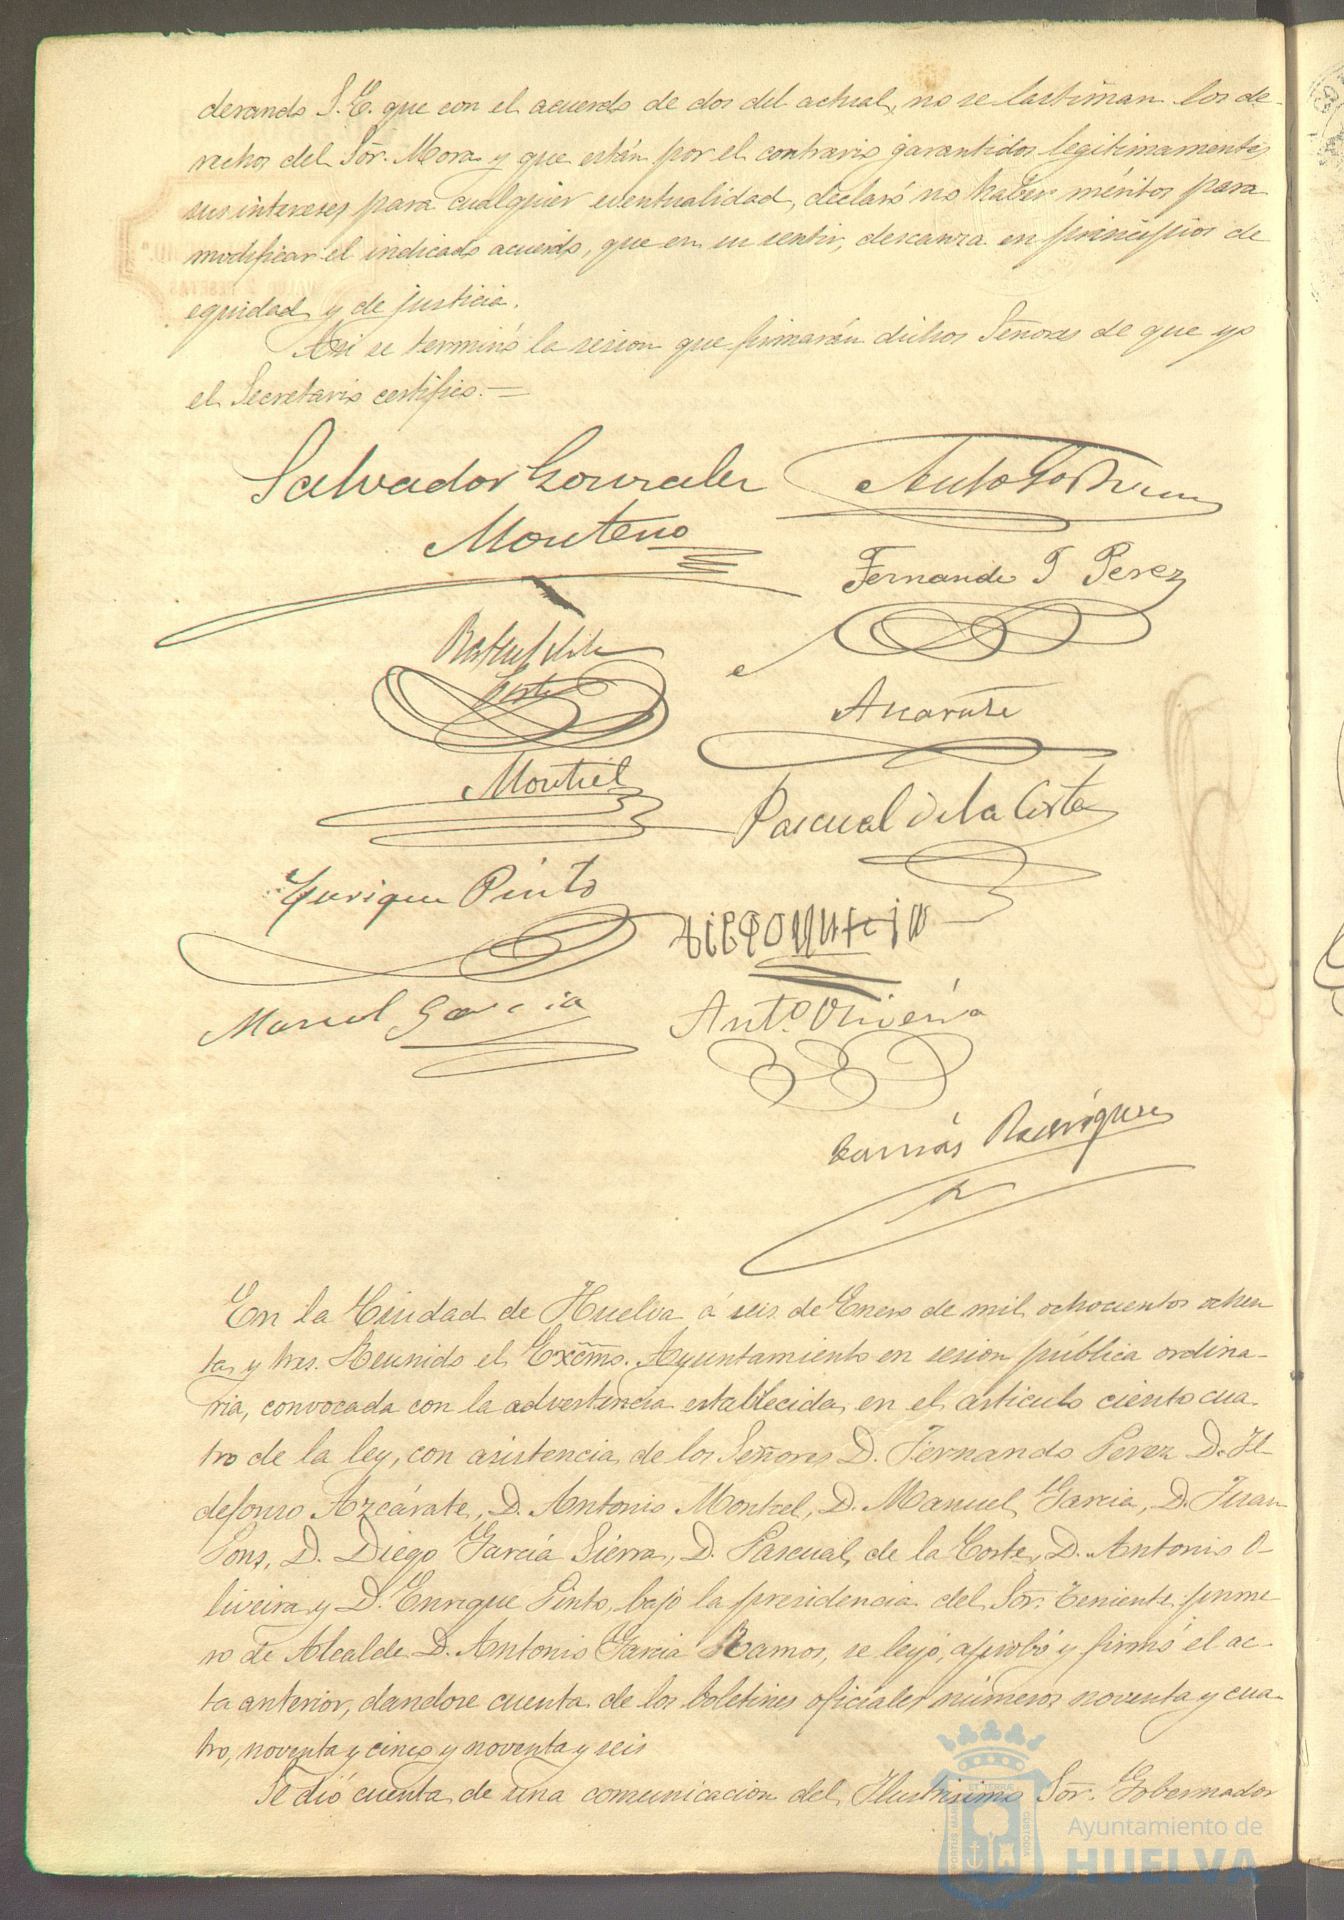 derando S. E. que con el acuerdo de dos del actual, no se lastiman los de-
rechos del Sõr. Mora y que están por el contrario garantidos legitimamente
sus intereses para cualquier eventualidad, declaró no haber méritos para
modificar el indicado acuerdo, que en su sentir, descansa en principios de
equidad y de justicia.
Asi se terminó la sesion que firmarán dichos Señores de que yo
el Secretario certifico.=
Salvador Gonzalez
Montero
Fernando J Perez
Azcarate
Montiel
Pascual de la Corte
Enrique Pinto
Manuel Garcia
Antº Oliveira
Rodriguez
En la Ciudad de Huelva á seis de Enero de mil ochocientos ochen
ta y tres. Reunido el Excm̃o. Ayuntamiento en sesion pública ordina-
ria, convocada con la advertencia establecida en el articulo ciento cua-
tro de la ley, con asistencia de los Señores D. Fernando Perez D. Il-
defonso Azcárate, D. Antonio Montiel, D. Manuel Garcia, D. Juan
Pons, D. Diego García Sierra, D. Pascual de la Corte, D. Antonio O-
liveira y D. Enrique Pinto, bajo la presidencia del Sõr. Teniente prime
ro de Alcalde D. Antonio Garcia Ramos, se leyó, aprobó y firmó el ac-
ta anterior, dandose cuenta de los boletines oficiales números noventa y cua-
tro, noventa y cinco y noventa y seis
Se dió cuenta de una comunicacion del Ilustrisimo Sõr. Gobernador
Ayuntamiento de
HUELVA